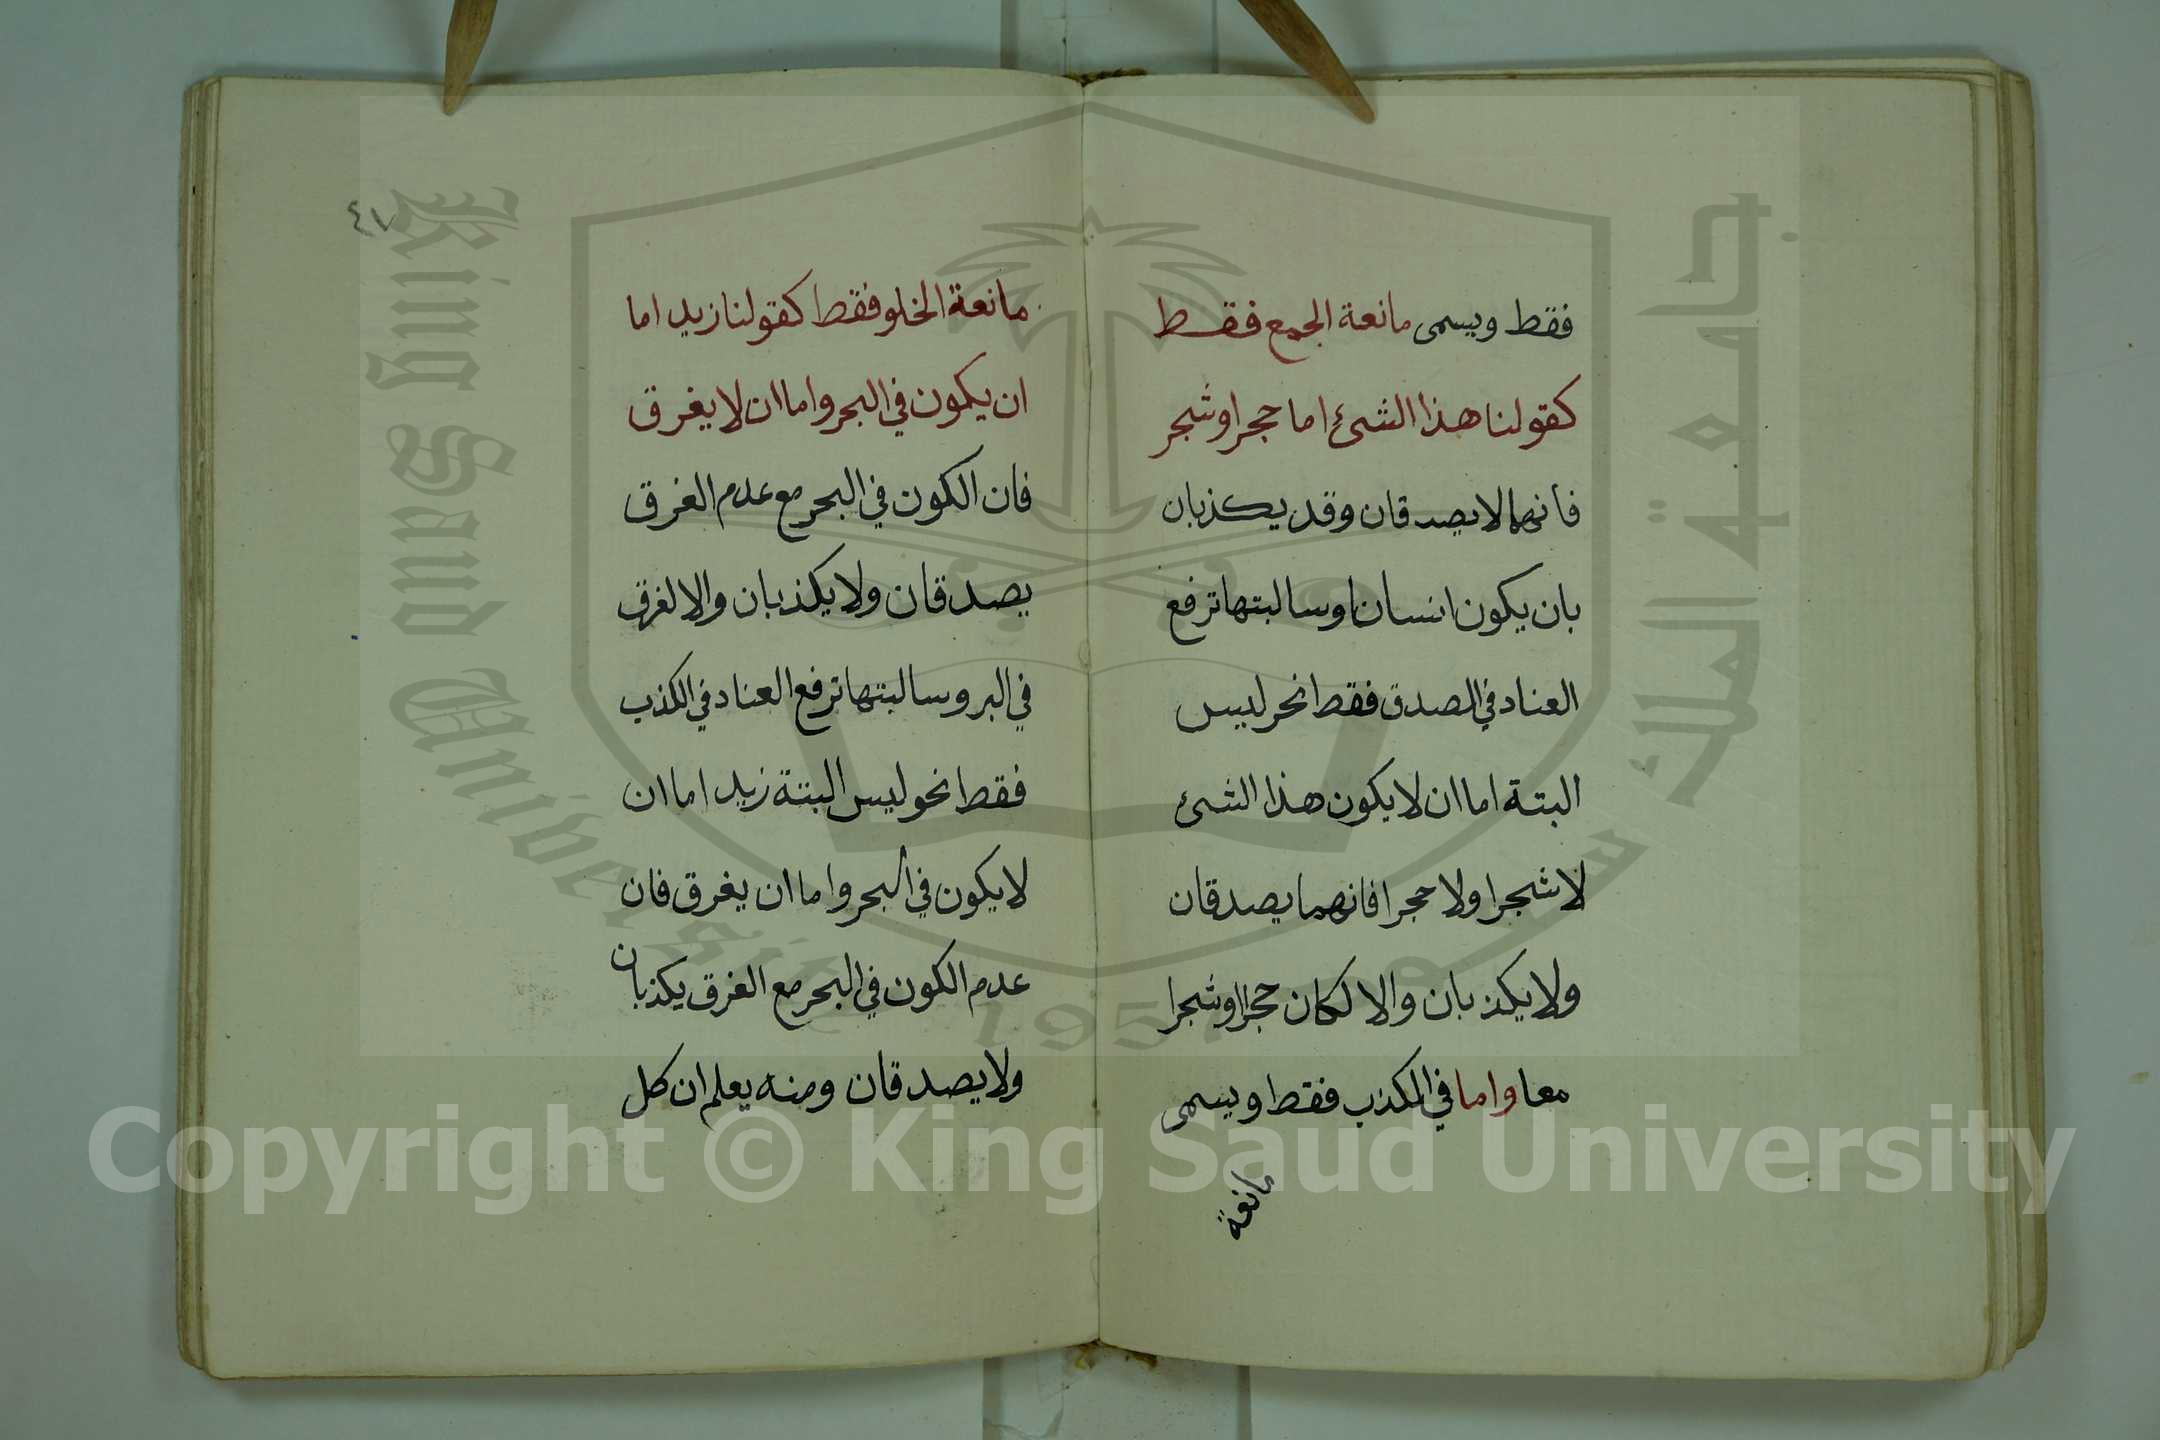 فقط ويسمى مانعة الجمع فقط
كقولنا هذا الشئ اما حجر او شجر
فانهما لا يصدقان وقد يكذبان
بان يكون انسانا وسالبتها ترفع
العناد في الصدق فقط نحو ليس
البتة اما ان لا يكون هذا الشئ
لا شجرا ولا حجرا فانهما يصدقان
ولا يكذبان والا لكان حجرا وشجرا
معا واما في الكذب فقط ويسمى
مانعة
٤٧
مانعة الخلو فقط كقولنا زيد اما
ان يكون في البحر واما ان لا يغرق
فان الكون في البحر مع عدم الغرق
يصدقان ولا يكذبان والا لغرق
في البر وسالبتها ترفع العناد في الكذب
فقط نحو ليس البتة زيد اما ان
لا يكون في البحر واما ان يغرق فان
عدم الكون في البحر مع الغرق يكذبان
ولا يصدقان ومنه يعلم ان كل
جامعة الملك سعود
King Saud University
1957
Copyright © King Saud University